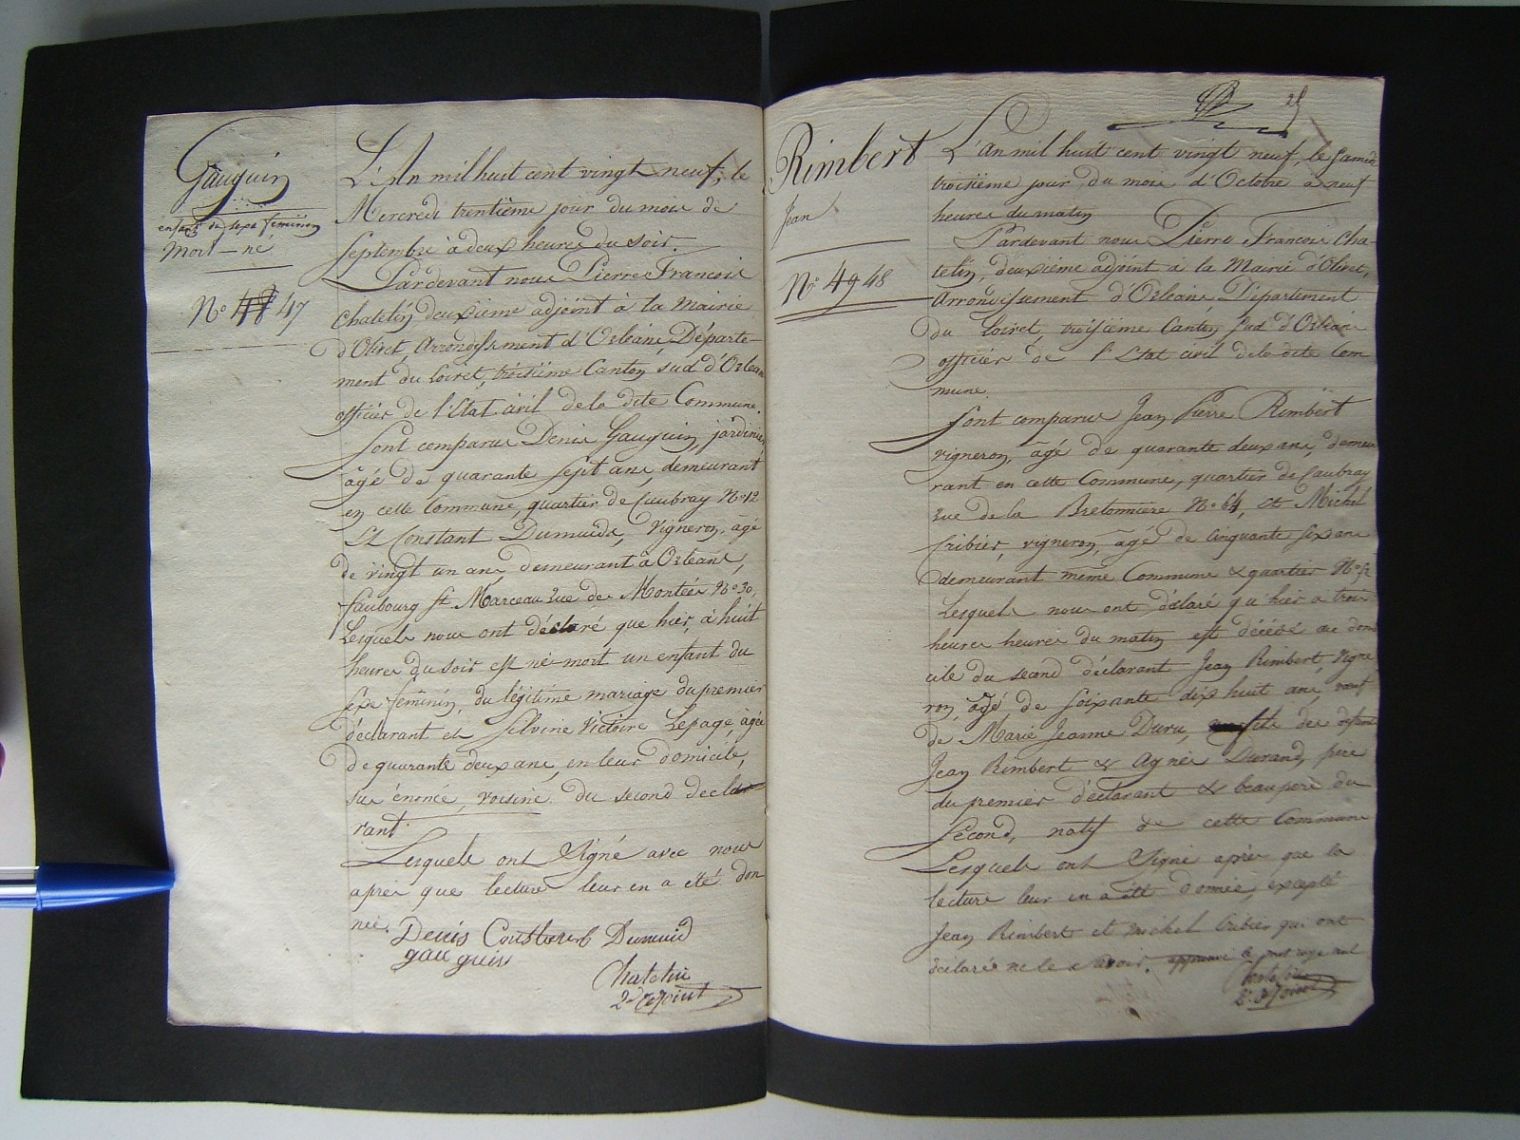 Gauguin
enfant de sexe féminin
Mort-né
No 47
L'An mil huit cent vingt neuf, le
Mercredi trentième jour du mois de
Septembre à deux heures du soir.
Pardevant nous Pierre François
Chatelin, deuxième adjoint à la Mairie
d'Olivet, Arrondissement d'Orléans, Départe-
ment du Loiret, troisième Canton sud d'Orléans
officier de l'Etat civil de la dite Commune.
Sont comparus Denis Gauguin, jardinier,
âgé de quarante sept ans, demeurant
en cette Commune, quartier de Caubray No 12
Et Constant Dumuids, Vigneron, âgé
de vingt un ans, demeurant à Orléans,
faubourg St Marceau rue des Montées No 30,
Lesquels nous ont déclaré que hier, à huit
heures du soir est né mort un enfant du
sexe féminin, du légitime mariage du premier
déclarant et Silvine Victoire Lepage, âgée
de quarante deux ans, en leur domicile,
sus énoncé, voisine du second décla-
rant.
Lesquels ont Signé avec nous
après que lecture leur en a été don
née.
Denis Constant Dumuid
gauguin
Chatelin
2d adjoint
25
Rimbert
Jean
No 49 48
L'an mil huit cent vingt neuf, le samedi
troisième jour du mois d'Octobre à neuf
heures du matin
Pardevant nous Pierre François Cha-
telin, deuxième adjoint à la Mairie d'Olivet,
Arrondissement d'Orléans Département
du Loiret, troisième Canton Sud d'Orléans
officier de l'Etat civil de la dite Com
mune.
Sont comparus Jean Pierre Rimbert
vigneron, âgé de quarante deux ans, demeu
rant en cette Commune, quartier de Caubray
rue de la Bretonnière No 64, et Michel
Cribier, vigneron, âgé de cinquante six ans
demeurant même Commune & quartier No 52
Lesquels nous ont déclaré qu'hier à trois
heures heures du matin est décédé au domi
cile du second déclarant Jean Rimbert, Vigne
ron, âgé de soixante dix huit ans, veuf
de Marie Jeanne Duru, fils des défunts
Jean Rimbert & Agnès Durand, père
du premier déclarant & beau père du
Second, natif de cette Commune
Lesquels ont Signé après que la
lecture leur en a été donnée, excepté
Jean Rimbert et Michel Cribier qui ont
déclarés ne le savoir. approuvé le mot rayé nul
Chatelin
2d adjoint